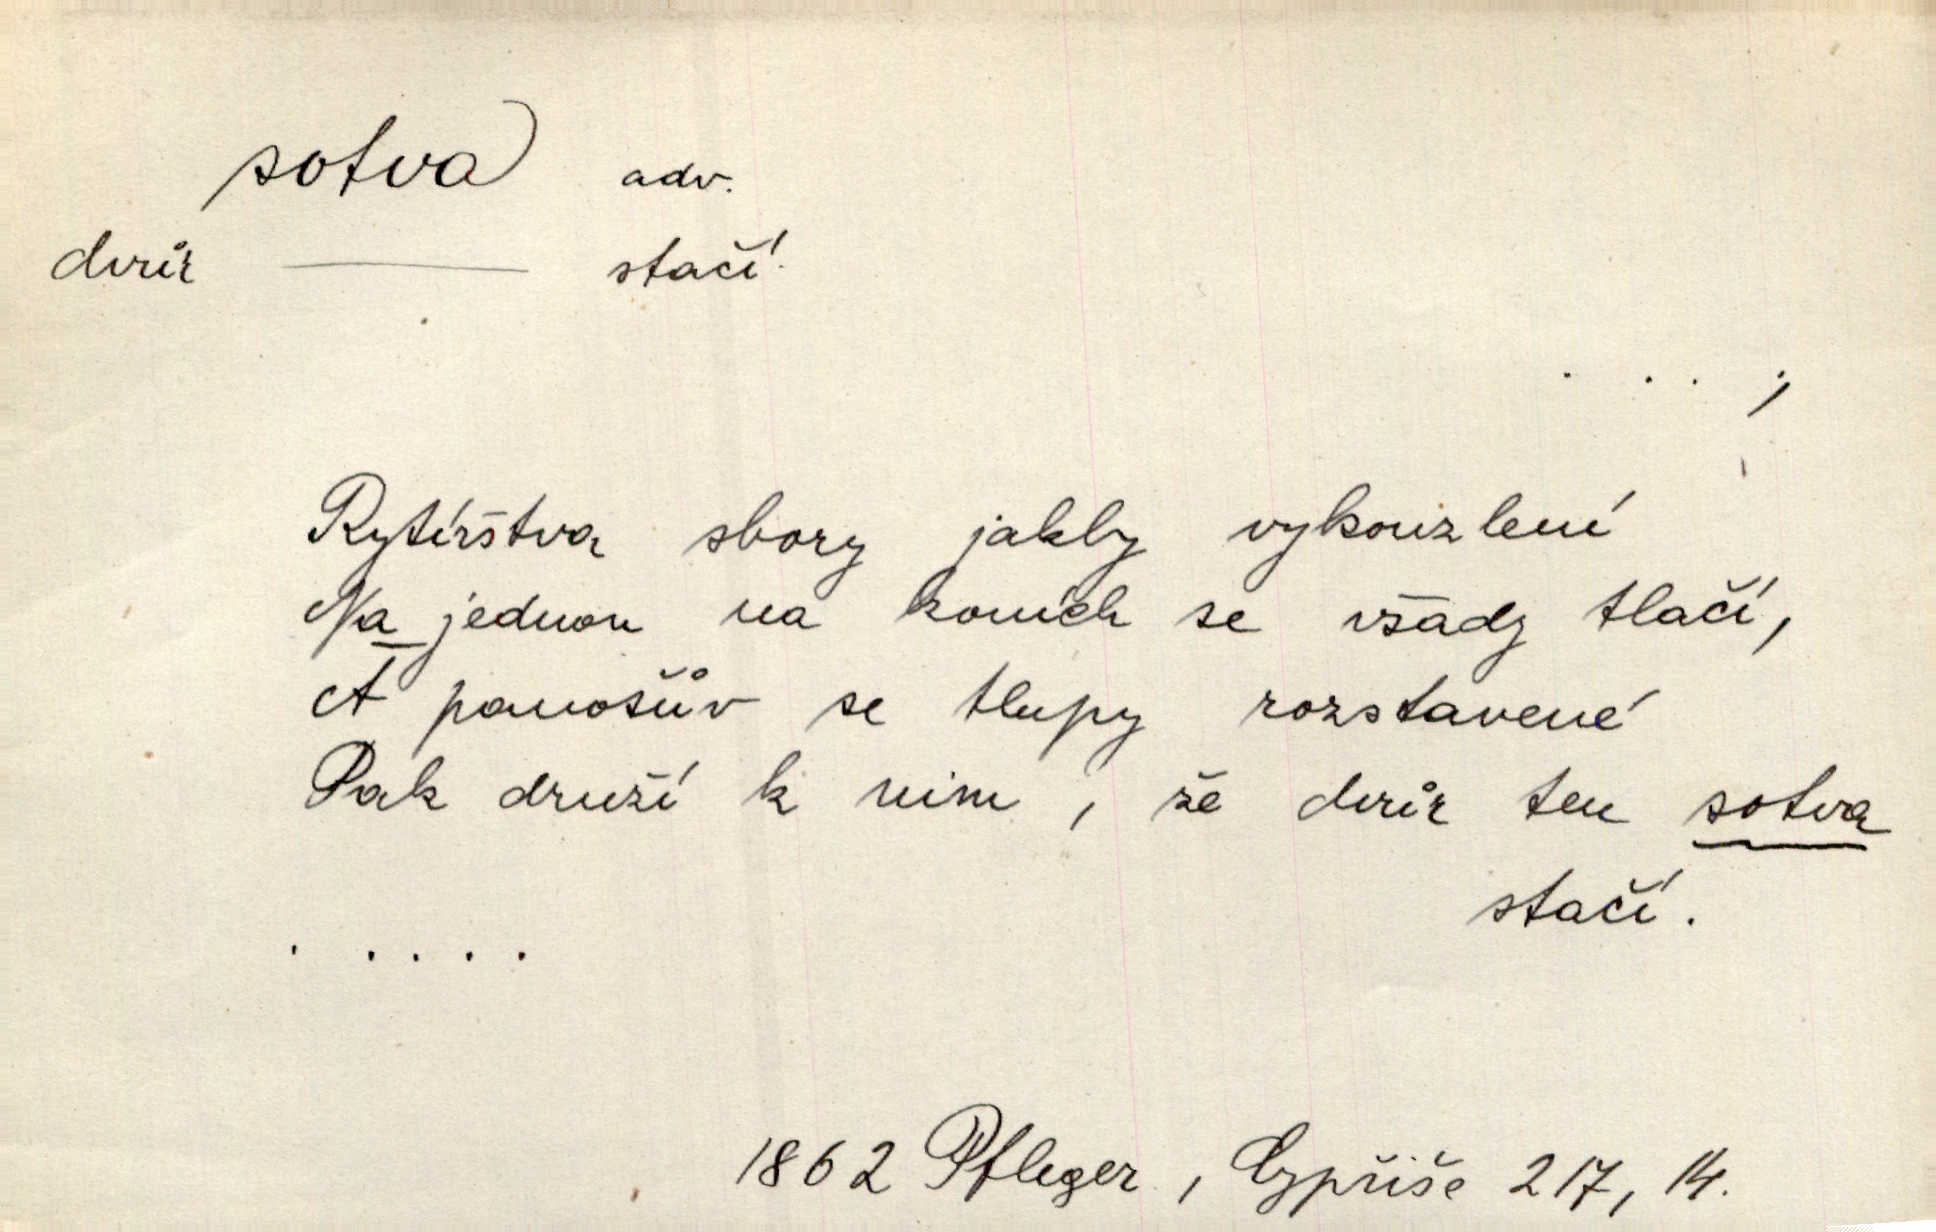 sotva adv.
dvůr —— stačí.
. . . . ;
Rytířstva sbory jakby vykouzlení
Na jednou na koních se všady tlačí,
A panošův se tlupy rozstavené
Pak druží k nim, že dvůr ten sotva
stačí.
. . . . .
1862 Pfleger, Cypřiše 217, 14.